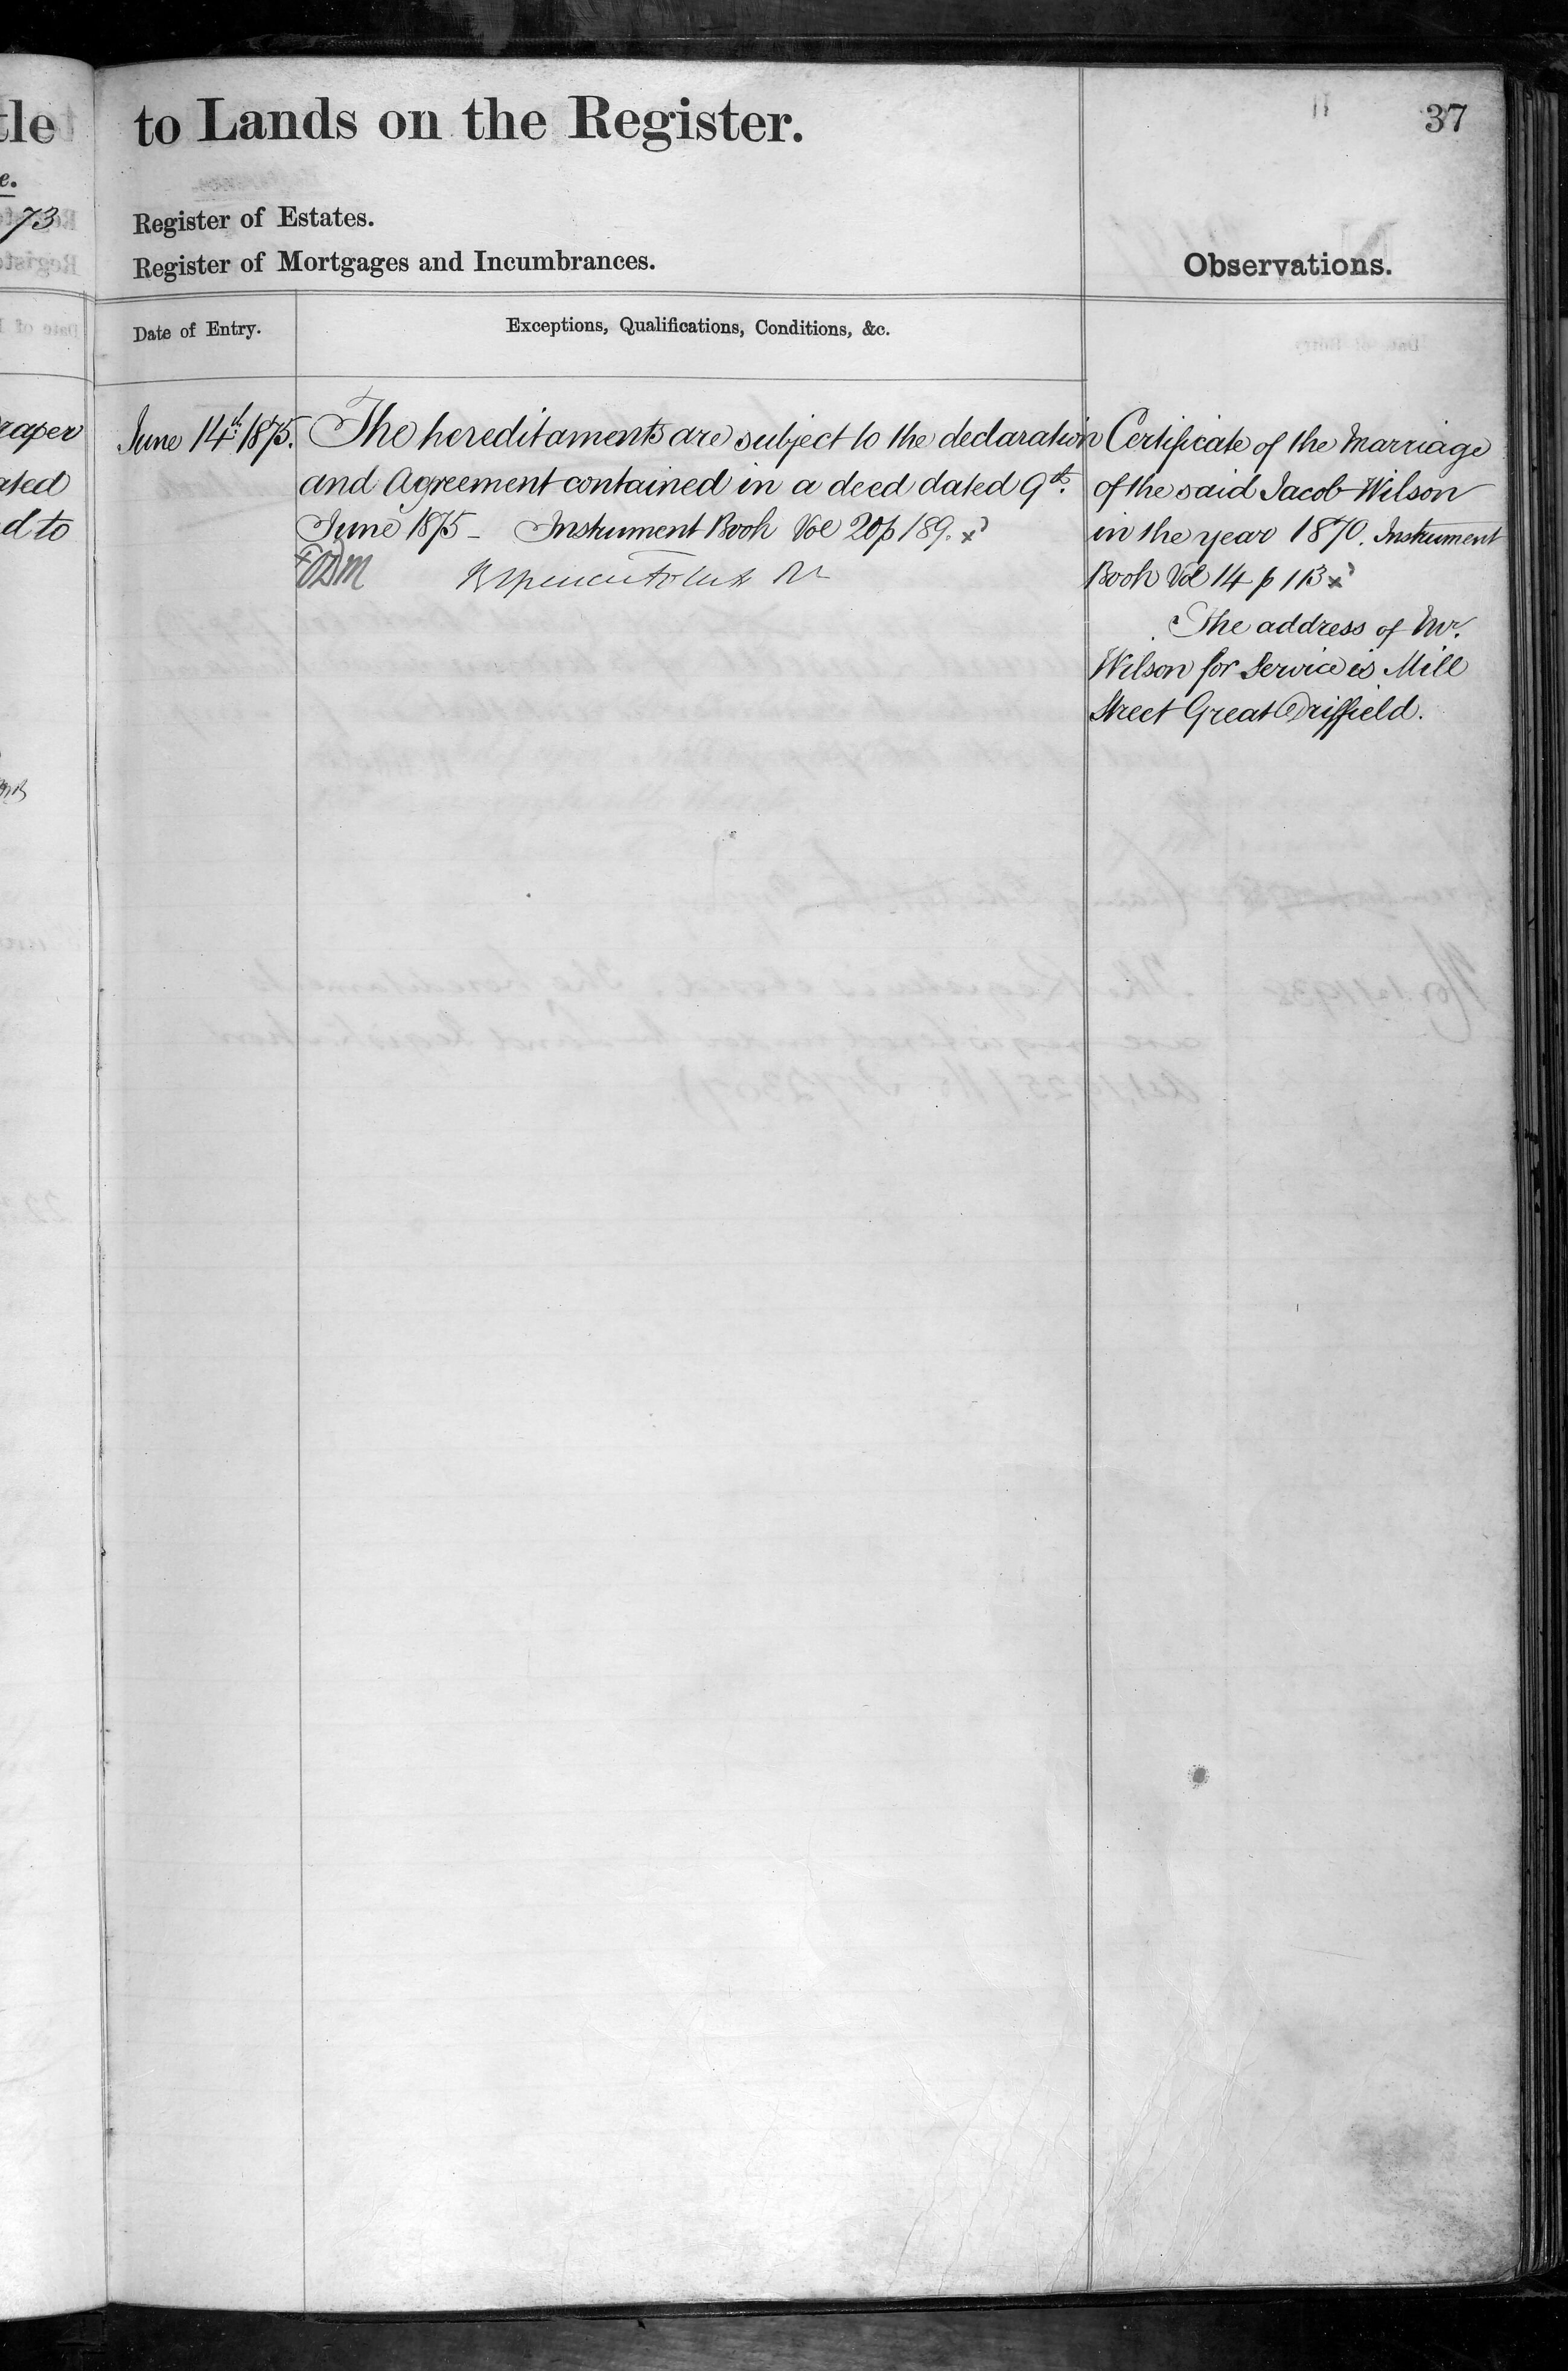 to Lands on the Register.
37
Register of Estates.
Register of Mortgages and Incumbrances.
Observations.
Date of Entry.
Exceptions, Qualifications, Conditions, &c.
June 14th 1875.
The hereditaments are subject to the declaration
and Agreement contained in a deed dated 9th.
June 1875 - Instrument Book Vol 20 p 189. x
Certificate of the Marriage
of the said Jacob Wilson
in the year 1870. Instrument
Book Vol 14 p 113 x
The address of Mr.
Wilson for Service is Mill
Street Great Driffield.
tle
e.
73
raper
ated
d to